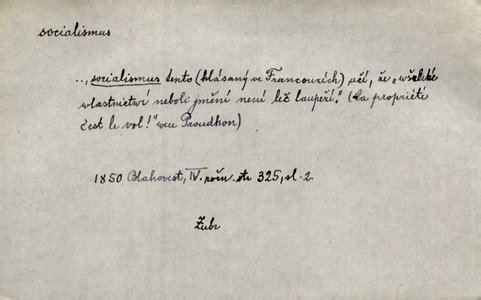 socialismus
.., socialismus tento (hlásaný ve Francouzích) učí, že „wšeliké
wlastnictwí neboli jmění není leč laupeží." (La propriété
c'est le vol!" wece Proudhon)
1850 Blahovest, IV. ročn. str. 325, sl. 2.
Zubr